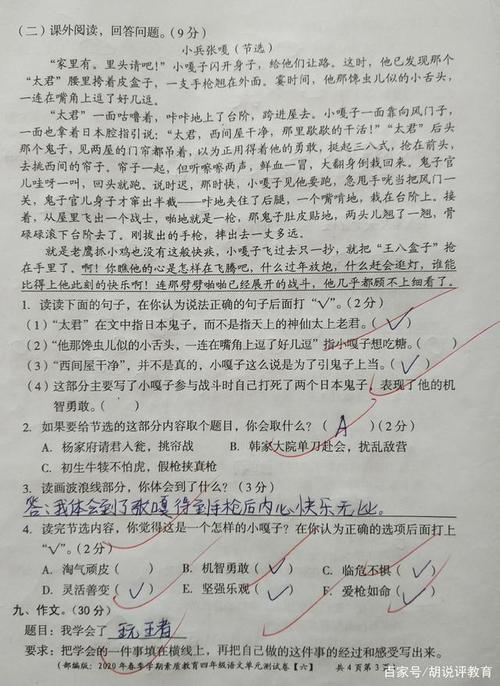 (二)课外阅读，回答问题。(9分)
小兵张嘎(节选)
“家里有。里头请吧！”小嘎子闪开身子，给他们让路。这时，他已发现那个
“太君”腰里挎着皮盒子，一支手枪翘在外面。霎时间，他那馋虫儿似的小舌头，
一连在嘴角上逗了好几逗。
“太君”一面咕噜着，咔咔地上了台阶，跨进屋去。小嘎子一面靠向风门子，
一面也拿着日本腔指引说：“太君，西间屋干净，那里歇歇的干活！”“太君”后头
那个鬼子，见两屋的门帘都吊着，以为正用得着他的勇敢，挺起三八式，抢在前头，
去挑西间的帘子。帘子一起，但听嚓嚓两声，鲜血一冒，大翻身倒栽回来。鬼子官
儿哇呀一叫，回头就跑。说时迟，那时快，小嘎子见他要跑，急甩手咣当把风门一
关，鬼子官儿身子才窜出半截——咔地夹住了后腿，一个嘴啃地，栽在台阶上。接
着，从屋里飞出一个战士，啪地就是一枪，那鬼子肚皮贴地，两头儿翘了一翘，骨
碌碌滚下台阶去了。刚拔出的手枪，摔出去一丈多远。
就是老鹰抓小鸡也没有这般快法，小嘎子飞过去只一抄，就把“王八盒子”抢
在手里了。啊！你瞧他的心是怎样在飞腾吧，什么过年放炮，什么赶会逛灯，谁能
比得上他此刻的快乐啊！连那劈劈啪啪已经展开的战斗，他几乎都顾不上细看了。
1. 读读下面的句子，在你认为说法正确的句子后面打“√”。(2分)
(1)“太君”在文中指日本鬼子，而不是指天上的神仙太上老君。(√)
(2)“他那馋虫儿似的小舌头，一连在嘴角上逗了好几逗”指小嘎子想吃糖。( )
(3)“西间屋干净”，并不是真的，小嘎子这么说是为了引鬼子上当。(√)
(4)这部分主要写了小嘎子参与战斗时自己打死了两个日本鬼子，表现了他的机
智勇敢。( )
2. 如果要给节选的这部分内容取个题目，你会取什么？(A)(2分)
A. 杨家府请君入瓮，挑帘战 B. 韩家大院单刀赴会，扰乱敌营
C. 初生牛犊不怕虎，假枪挟真枪
3. 读画波浪线部分，你体会到了什么？(3分)
答：我体会到了嘎得到手枪后内心快乐无比。
4. 读完节选内容，你觉得这是一个怎样的小嘎子？在你认为正确的选项后面打上
“√”。(2分)
A. 淘气顽皮( ) B. 机智勇敢(√) C. 临危不惧(√)
D. 灵活善变(√) E. 坚强乐观(√) F. 爱枪如命(√)
九、作文。(30分)
题目：我学会了玩王者
要求：把学会的一件事填在横线上，再把自己做的这件事的经过和感受写出来。
(部编版：2020年春季学期素质教育四年级语文单元测试卷【六】 共4页第3页)
百家号/胡说评教育